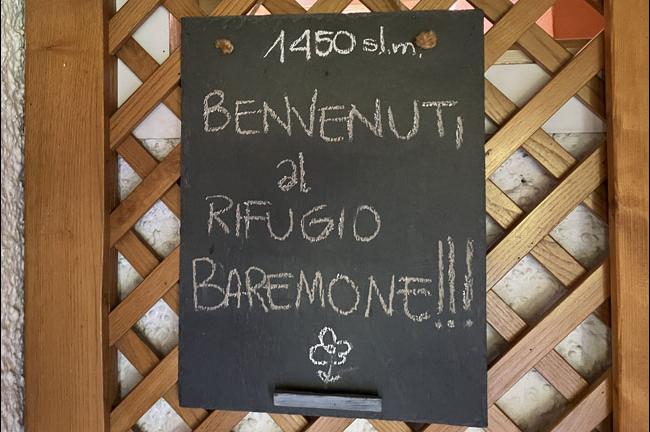 1450 sl.m.
BENVENUTI
al
RIFUGIO
BAREMONE!!!